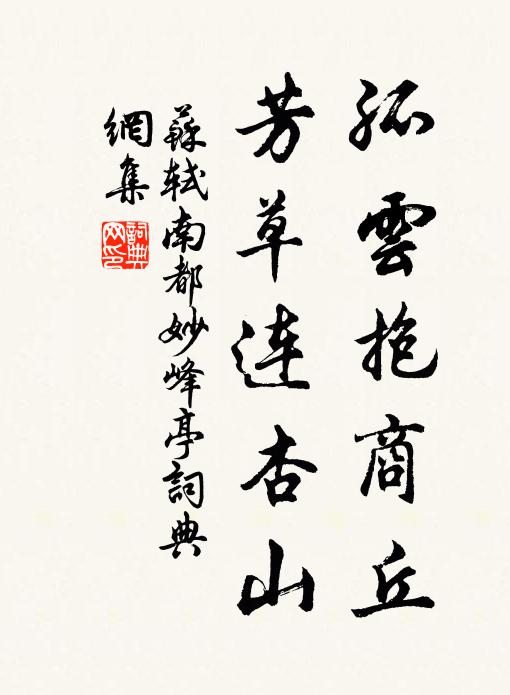 孤雲抱商丘
芳草连杏山
蘇軾南都妙峰亭詞典
網集
詞典
网印